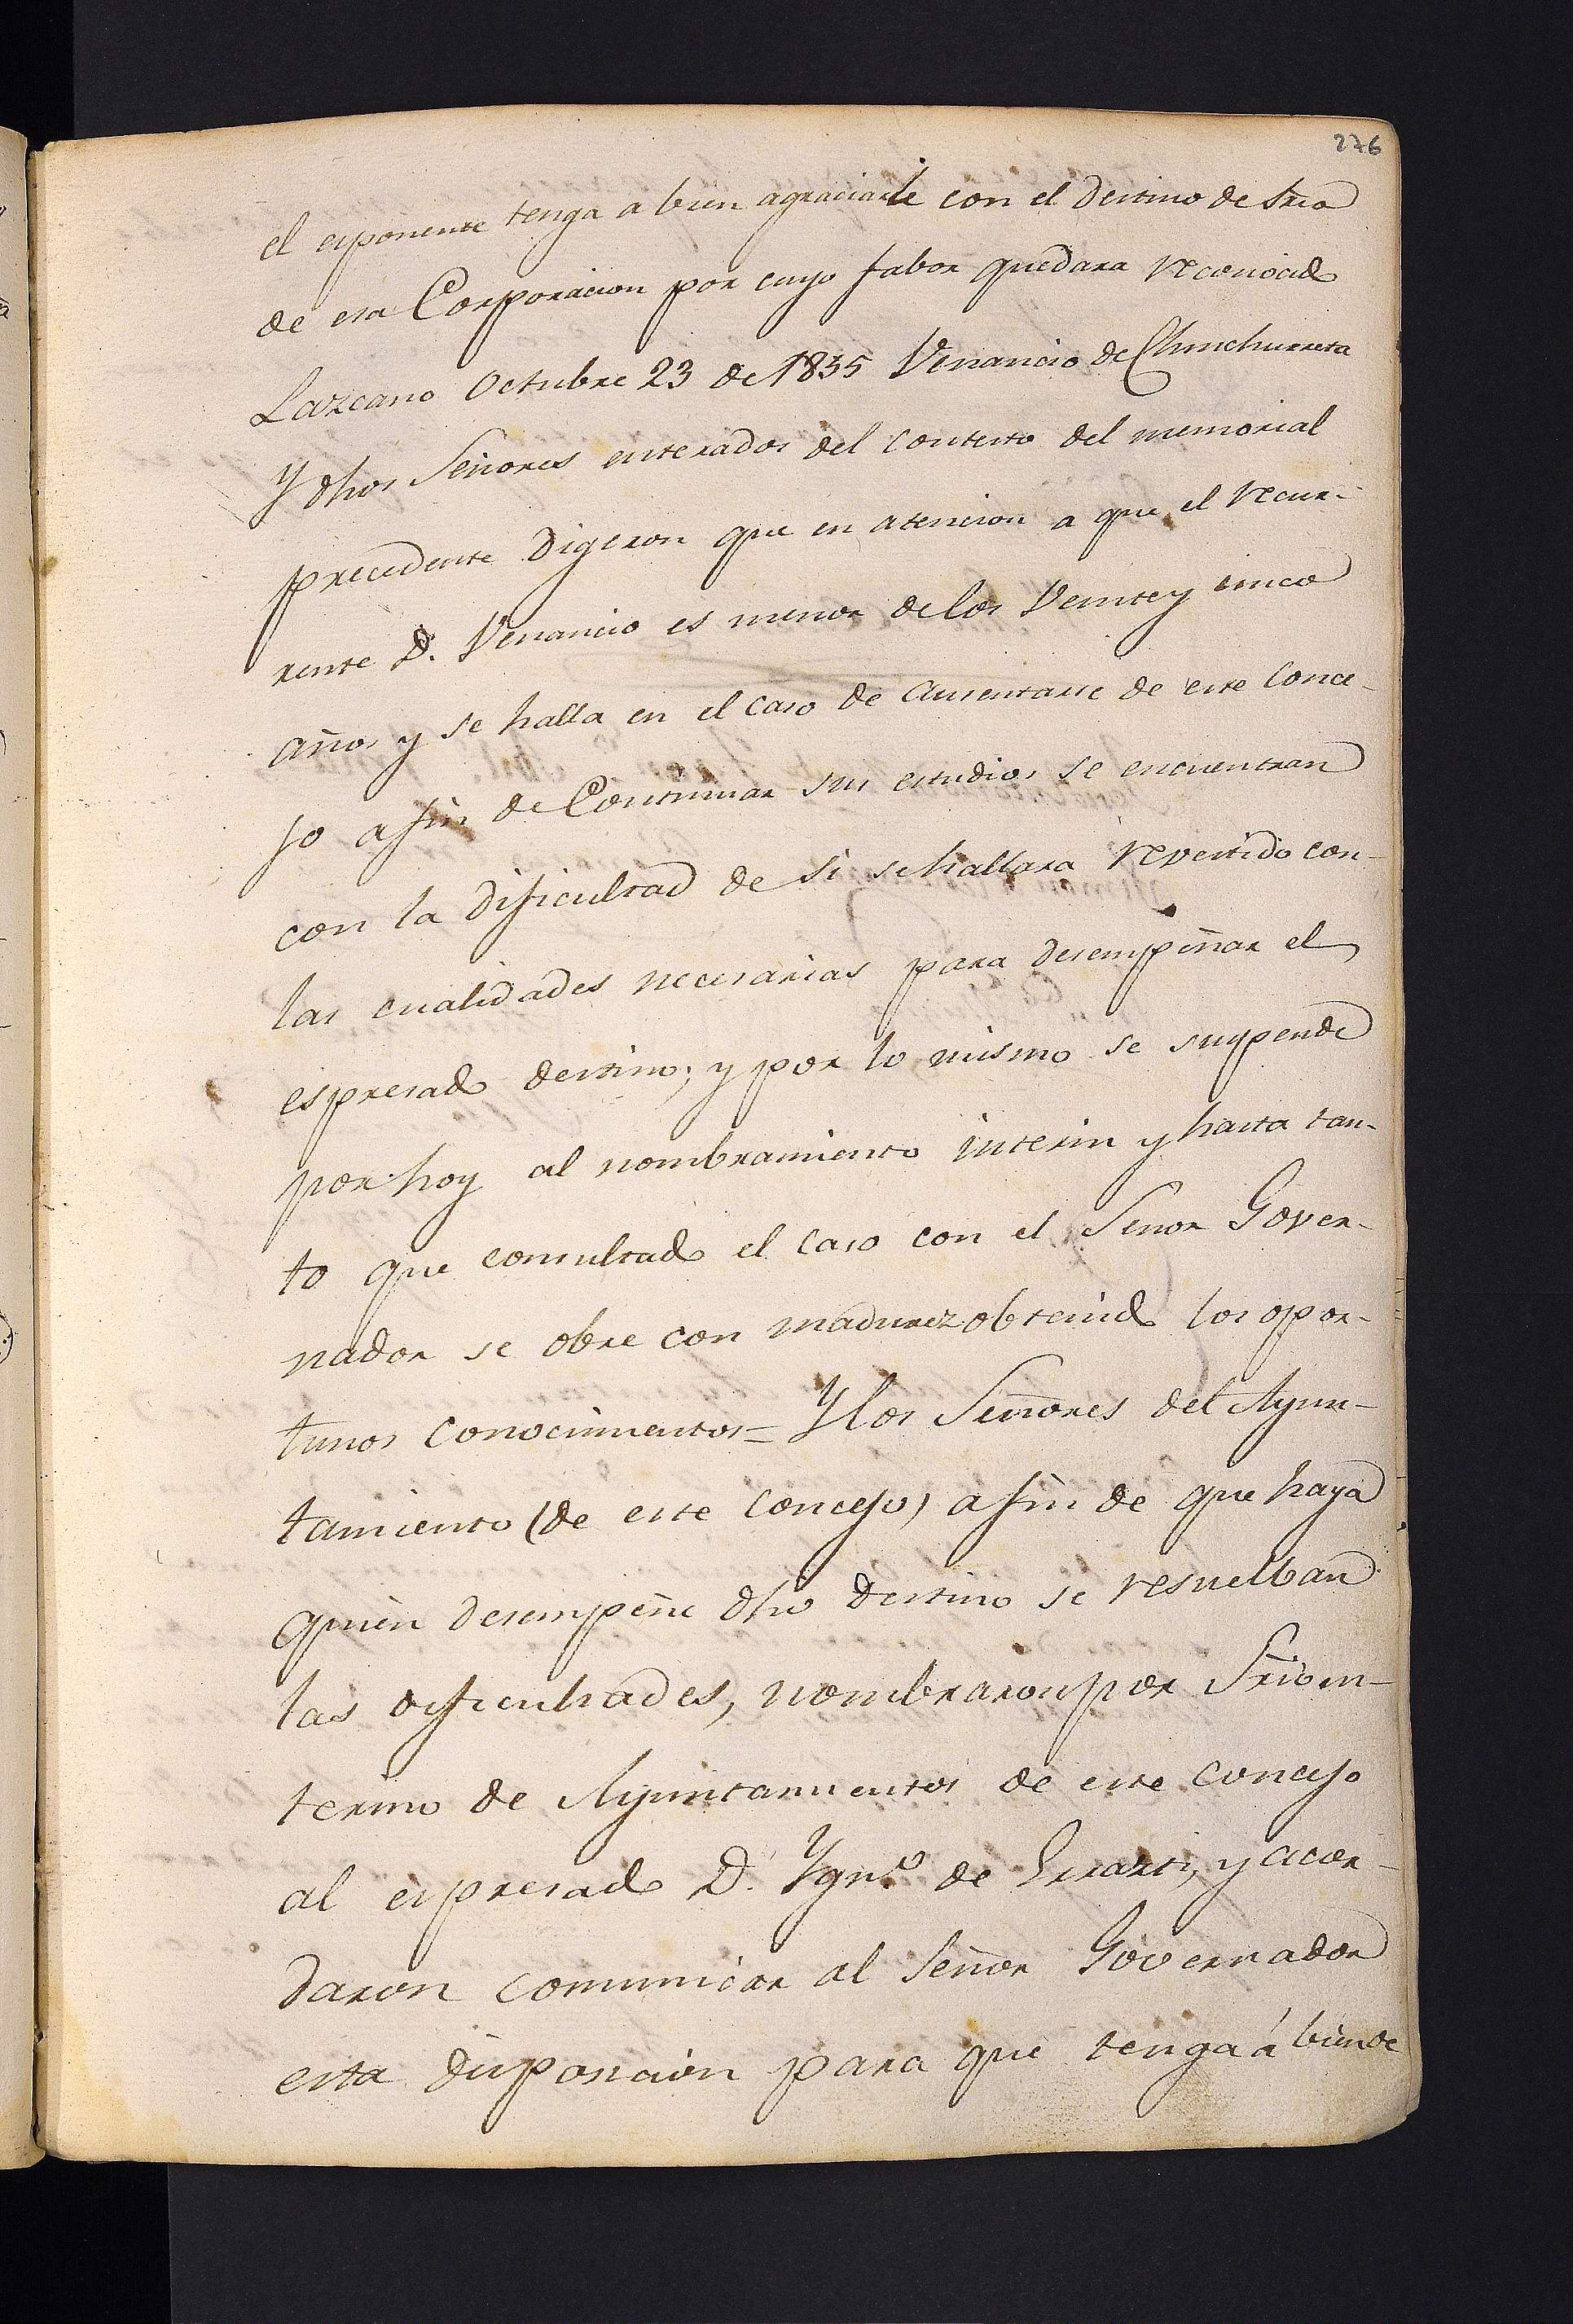 276
el esponente tenga a bien agraciarle con el destino de Srio
de esa Corporacion por cuyo fabor quedara reconocido
Lazcano Octubre 23 de 1835 Venancio de Chinchurreta
Y dhos Señores enterados del contesto del memorial
precedente Digeron que en atencion a que el recur-
rente D. Venancio es menor de los Veinte y cinco
años y se halla en el caso de ausentarse de este Conce-
jo a fin de Continuar sus estudios se encuentran
con la dificultad de si se hallara revestido con
las cualidades necesarias para desempeñar el
espresado destino; y por lo mismo se suspende
por hoy al nombramiento interin y hasta tan-
to que consultado el caso con el Señor Gover-
nador se obre con madurez obtenido los opor-
tunos conocimientos= Y los Señores del Ayun-
tamiento (de este Concejo) a fin de que haya
quien desempeñe dho destino se resuelban
las dificultades, nombraron por Srio in-
terino de Ayuntamientos de este concejo
al espresado D. Ygn.o de y acor-
daron comunicar al Señor Governador
esta disposicion para que tenga á bien de